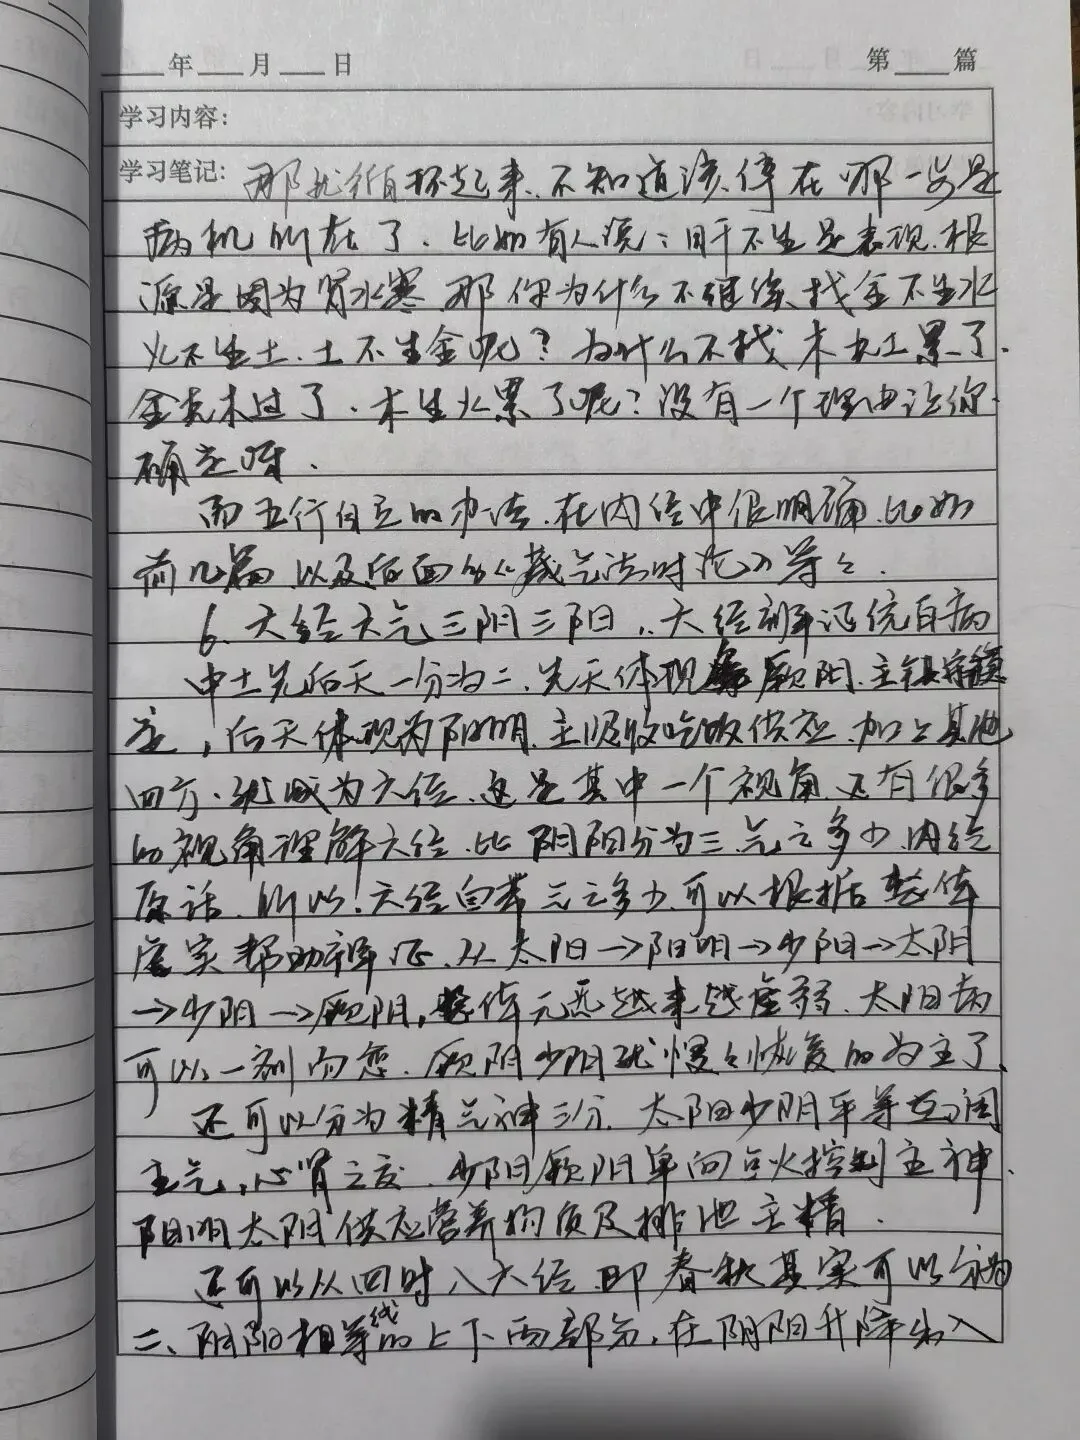 年 月 日 第 篇
学习内容:
学习笔记: 那就循环起来、不知道该停在哪一步是
病机所在了. 比如有人说:肝不生是表现.根
源是因为肾水寒.那你为什么不继续找金不生水
火不生土.土不生金呢?为什么不找木 累了.
金克木过了.木生火累了呢?没有一个理由让你
确定呀.
而五行自立的办法.在内经中很明确.比如
前几篇 以及后面的《藏气法时论》等等.
6、六经六气三阴三阳..六经辨证统百病
中土先后天一分为二.先天体现 厥阴.主
定,后天体现为阳明.主吸收吃饭供应.加上其他
四方.就成为六位.这是其中一个视角.还有很多
的视角理解六经.比 阴阳分为三.气之多少.内经
原话.所以!六经自带元之多少.可以根据整体
虚实帮助辨证.从太阳→阳明→少阳→太阴
→少阴→厥阴,整体元气越来越虚弱.太阳病
可以一剂而愈.厥阴少阴就慢慢恢复的为主了.
还可以分为精气神三分.太阳少阴平等互调
主气,心肾之交.少阳厥阴单向点火控制主神.
阳明太阴供应营养物质及排泄主精.
还可以从四时入六经.即春秋其实可以分为
二、阴阳相等线的上下两部分.在阴阳升降出入